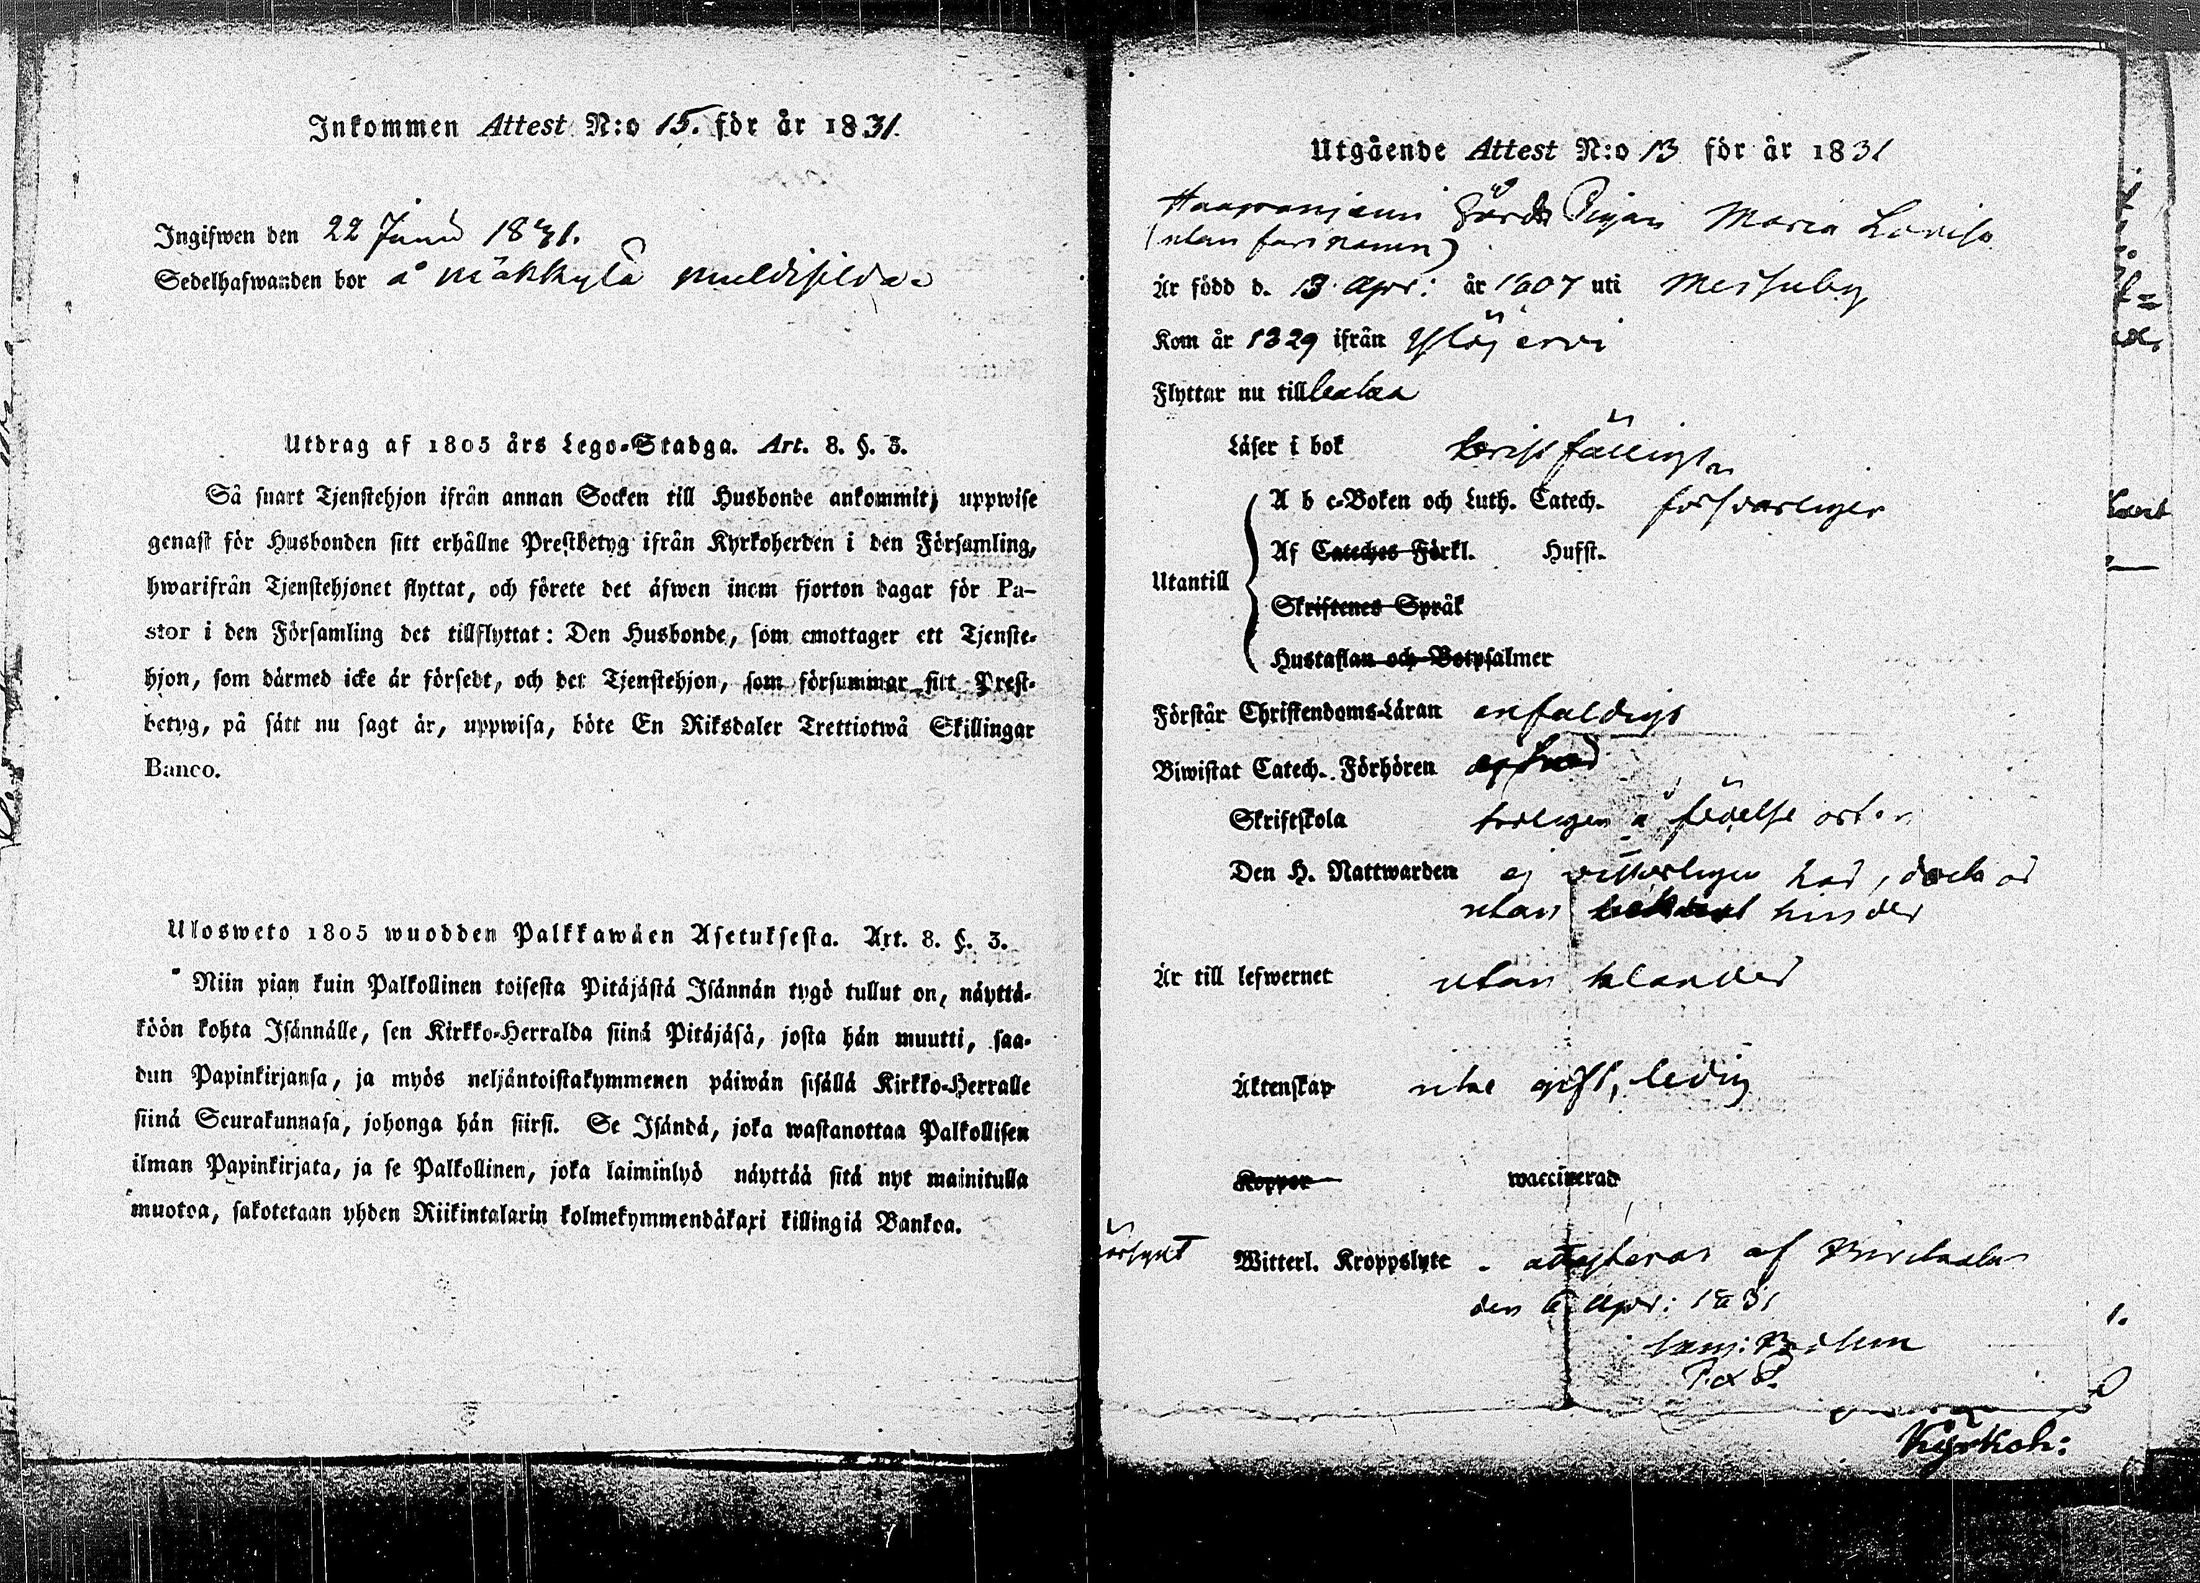 Inkommen Attest N:o 15. för år 1831.
Ingifwen den 22 Junii 1831.
Sedelhafwanden bor å Mäkkylä
Utdrag af 1805 års Lego-Stadga. Art. 8. §. 3.
Så snart Tjenstehjon ifrån annan Socken till Husbonde ankommit, uppwise
genast för Husbonden sitt erhållne Prestbetyg ifrån Kyrkoherden i den Församling,
hwarifrån Tjenstehjonet flyttat, och förete det äfwen inom fjorton dagar för Pa-
stor i den Församling det tillflyttat: Den Husbonde, som emottager ett Tjenste-
hjon, som därmed icke är försedt, och det Tjenstehjon, som försummar sitt Prest-
betyg, på sätt nu sagt är, uppwisa, böte En Riksdaler Trettiotwå Skillingar
Banco.
Ulosweto 1805 wuodden Palkkawäen Asetuksesta. Art. 8. §. 3.
Niin pian kuin Palkollinen toisesta Pitäjästä Isännän tygö tullut on, näyttä-
köön kohta Isännälle, sen Kirkko-Herralda siinä Pitäjäsä, josta hän muutti, saa-
dun Papinkirjansa, ja myös neljäntoistakymmenen päiwän sisällä Kirkko-Herralle
siinä Seurakunnasa, johonga hän siirsi. Se Isändä, joka wastanottaa Palkollisen
ilman Papinkirjata, ja se Palkollinen, joka laiminlyö näyttää sitä nyt mainitulla
muotoa, sakotetaan yhden Riikintalarin kolmekymmendäkaxi killingiä Bankoa.
Utgående Attest N:o 13 för år 1831
Pigan Maria Lovisa
(utan )
Är född d. 13 Apr: år 1807 uti Messuby
Kom år 1829 ifrån Ylöjervi
Flyttar nu till
Läser i bok
A b c-Boken och Luth. Catech. försvarligen
Af Cateches Förkl. Hufst.
Utantill
Skriftenes Språk
Hustaflan och Botpsalmer
Förstår Christendoms-Läran enfaldigt
Biwistat Catech. Förhören
Skriftskola troligen å födelse orten
Den H. Nattwarden ej vitterligen här, dock är
utan bekant hinder
Är till lefwernet utan klander
Äktenskap icke gift, ledig
Koppor waccinerad
Witterl. Kroppslyte - attesteras af Birckala
den 6 Apr: 1831
P. & P.
Kyrkoh: